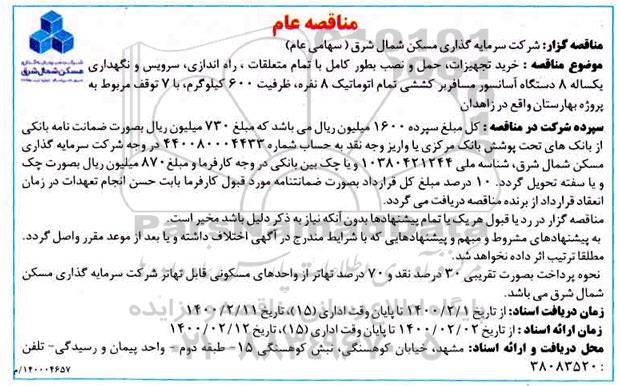 مناقصه عام
شرکت سرمایه گذاری
مسکن شمال شرق
مناقصه گزار: شرکت سرمایه گذاری مسکن شمال شرق ( سهامی عام)
موضوع مناقصه : خرید تجهیزات، حمل و نصب بطور کامل با تمام متعلقات ، راه اندازی، سرویس و نگهداری
یکساله ۸ دستگاه آسانسور مسافربر کششی تمام اتوماتیک ۸ نفره، ظرفیت ۶۰۰ کیلوگرم، با ۷ توقف مربوط به
پروژه بهارستان واقع در زاهدان
سپرده شرکت در مناقصه : کل مبلغ سپرده ۱۶۰۰ میلیون ریال می باشد که مبلغ ۷۳۰ میلیون ریال بصورت ضمانت نامه بانکی
از بانک های تحت پوشش بانک مرکزی یا واریز وجه نقد به حساب شماره ۴۴۰۰۸۰۰۰۴۴۳۳ در وجه شرکت سرمایه گذاری
مسکن شمال شرق، شناسه ملی ۱۰۳۸۰۴۲۱۲۴۴ و یا چک بین بانکی در وجه کارفرما و مبلغ ۸۷۰ میلیون ریال بصورت چک
و یا سفته تحویل گردد. ۱۰ درصد مبلغ کل قرارداد بصورت ضمانتنامه مورد قبول کارفرما بابت حسن انجام تعهدات در زمان
انعقاد قرارداد از برنده مناقصه دریافت می گردد.
مناقصه گزار در رد یا قبول هر یک یا تمام پیشنهادها بدون آنکه نیاز به ذکر دلیل باشد مخیر است.
به پیشنهادهای مشروط و مبهم و پیشنهادهایی که با شرایط مندرج در آگهی اختلاف داشته و یا بعد از موعد مقرر واصل گردد.
مطلقا ترتیب اثر داده نخواهد شد.
نحوه پرداخت بصورت تقریبی ۳۰ درصد نقد و ۷۰ درصد تهاتر از واحدهای مسکونی قابل تهاتر شرکت سرمایه گذاری مسکن
شمال شرق می باشد.
زمان دریافت اسناد: از تاریخ ۱۴۰۰/۲/۱ تا پایان وقت اداری (۱۵)، تاریخ ۱۴۰۰/۲/۱۱
زمان ارائه اسناد : از تاریخ ۱۴۰۰/۰۲/۰۲ تا پایان وقت اداری (۱۵)، تاریخ ۱۴۰۰/۰۲/۱۲
محل دریافت و ارائه اسناد : مشهد، خیابان کوهسنگی، نبش کوهسنگی ۱۵- طبقه دوم- واحد پیمان و رسیدگی- تلفن
: ۳۸۰۸۳۵۲۰
۱۴۰۰۰۴۶۵۷/م